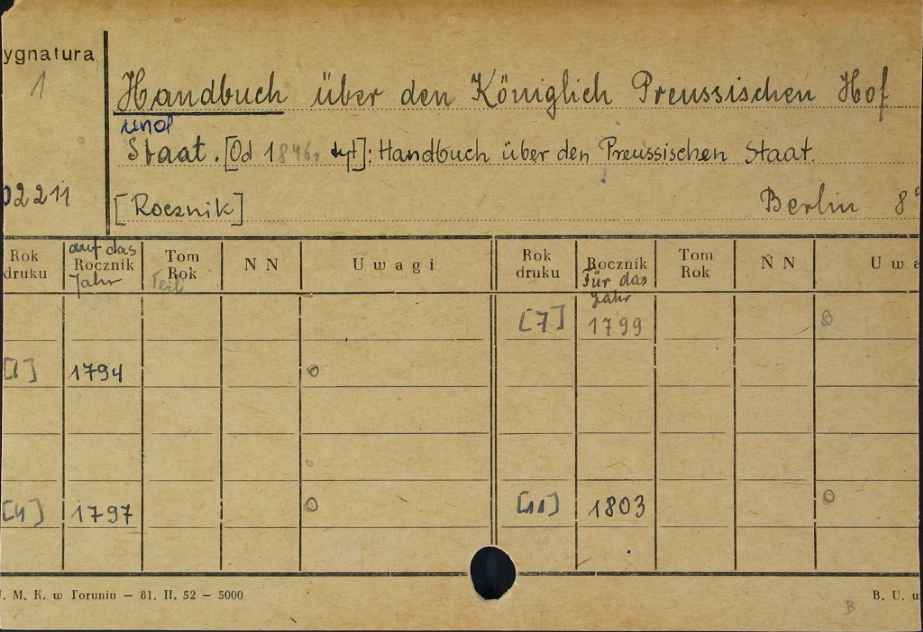 ygnatura
1
Handbuch über den Königlich Preussischen Hof
und
Staat. [Od 1846, tyt]: Handbuch über den Preussischen Staat.
02211
[Rocznik] Berlin 8°
Rok druku auf das Rocznik Jahr Tom Rok Teil N N Uwagi Rok druku Rocznik Für das Jahr Tom Rok N N Uwa
[7] 1799 0
[1] 1794 0
[4] 1797 0 [11] 1803 0
U. M. K. w Toruniu — 81. II. 52 — 5000 B. U. u
B